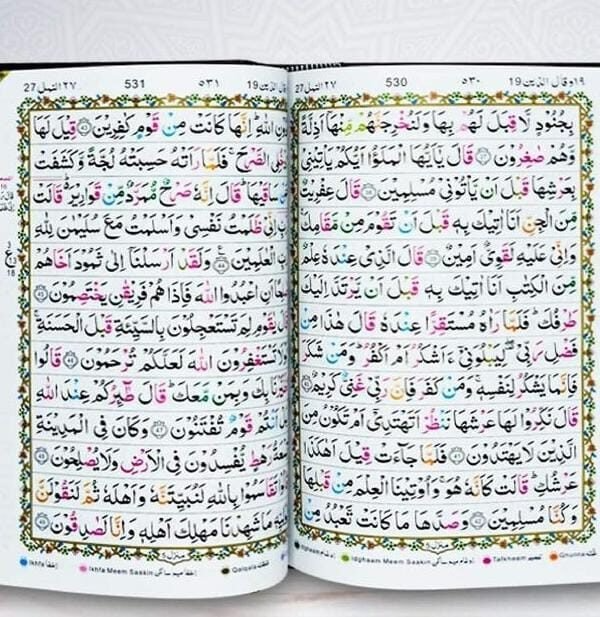 ١٩ وقال الذين 19
٥٣٠
530
٢٧ النمل 27
بِجُنُودٍ لَّا قِبَلَ لَهُم بِهَا وَلَنُخْرِجَنَّهُم مِّنْهَا اَذِلَّةً
وَّهُمْ صٰغِرُوْنَ ۝٣٧ قَالَ يٰۤاَيُّهَا الْمَلَؤُا اَيُّكُمْ يَاْتِيْنِيْ
بِعَرْشِهَا قَبْلَ اَنْ يَّاْتُوْنِيْ مُسْلِمِيْنَ ۝٣٨ قَالَ عِفْرِيْتٌ
مِّنَ الْجِنِّ اَنَا اٰتِيْكَ بِهٖ قَبْلَ اَنْ تَقُوْمَ مِنْ مَّقَامِكَ
وَاِنِّيْ عَلَيْهِ لَقَوِيٌّ اَمِيْنٌ ۝٣٩ قَالَ الَّذِيْ عِنْدَهٗ عِلْمٌ
مِّنَ الْكِتٰبِ اَنَا اٰتِيْكَ بِهٖ قَبْلَ اَنْ يَّرْتَدَّ اِلَيْكَ
طَرْفُكَ ؕ فَلَمَّا رَاٰهُ مُسْتَقِرًّا عِنْدَهٗ قَالَ هٰذَا مِنْ
فَضْلِ رَبِّيْ لِيَبْلُوَنِيْۤ ءَاَشْكُرُ اَمْ اَكْفُرُ ؕ وَمَنْ شَكَرَ
فَاِنَّمَا يَشْكُرُ لِنَفْسِهٖ ۚ وَمَنْ كَفَرَ فَاِنَّ رَبِّيْ غَنِيٌّ كَرِيْمٌ ۝٤٠
قَالَ نَكِّرُوْا لَهَا عَرْشَهَا نَنْظُرْ اَتَهْتَدِيْۤ اَمْ تَكُوْنُ مِنَ
الَّذِيْنَ لَا يَهْتَدُوْنَ ۝٤١ فَلَمَّا جَآءَتْ قِيْلَ اَهٰكَذَا
عَرْشُكِ ؕ قَالَتْ كَاَنَّهٗ هُوَ ۚ وَاُوْتِيْنَا الْعِلْمَ مِنْ قَبْلِهَا
وَكُنَّا مُسْلِمِيْنَ ۝٤٢ وَصَدَّهَا مَا كَانَتْ تَّعْبُدُ مِنْ
منزل ٥
Idghaam Meem Saakin
Talkheem
Ghunna
١٩ وقال الذين 19
٥٣١
531
٢٧ النمل 27
دُوْنِ اللّٰهِ ؕ اِنَّهَا كَانَتْ مِنْ قَوْمٍ كٰفِرِيْنَ ۝٤٣ قِيْلَ لَهَا
ادْخُلِي الصَّرْحَ ۚ فَلَمَّا رَاَتْهُ حَسِبَتْهُ لُجَّةً وَّكَشَفَتْ
عَنْ سَاقَيْهَا ؕ قَالَ اِنَّهٗ صَرْحٌ مُّمَرَّدٌ مِّنْ قَوَارِيْرَ ؕ قَالَتْ
رَبِّ اِنِّيْ ظَلَمْتُ نَفْسِيْ وَاَسْلَمْتُ مَعَ سُلَيْمٰنَ لِلّٰهِ
رَبِّ الْعٰلَمِيْنَ ۝٤٤ وَلَقَدْ اَرْسَلْنَاۤ اِلٰى ثَمُوْدَ اَخَاهُمْ
اَنِ اعْبُدُوا اللّٰهَ فَاِذَا هُمْ فَرِيْقٰنِ يَخْتَصِمُوْنَ ۝٤٥
قَالَ يٰقَوْمِ لِمَ تَسْتَعْجِلُوْنَ بِالسَّيِّئَةِ قَبْلَ الْحَسَنَةِ ۚ
لَوْلَا تَسْتَغْفِرُوْنَ اللّٰهَ لَعَلَّكُمْ تُرْحَمُوْنَ ۝٤٦ قَالُوا
بِكَ وَبِمَنْ مَّعَكَ ؕ قَالَ طٰٓئِرُكُمْ عِنْدَ اللّٰهِ
بَلْ اَنْتُمْ قَوْمٌ تُفْتَنُوْنَ ۝٤٧ وَكَانَ فِي الْمَدِيْنَةِ
رَهْطٍ يُّفْسِدُوْنَ فِي الْاَرْضِ وَلَا يُصْلِحُوْنَ ۝٤٨
تَقَاسَمُوْا بِاللّٰهِ لَنُبَيِّتَنَّهٗ وَاَهْلَهٗ ثُمَّ لَنَقُوْلَنَّ
مَا شَهِدْنَا مَهْلِكَ اَهْلِهٖ وَاِنَّا لَصٰدِقُوْنَ ۝٤٩
منزل ٥
Ikhfa
Ikhfa Meem Saakin
Qalqala